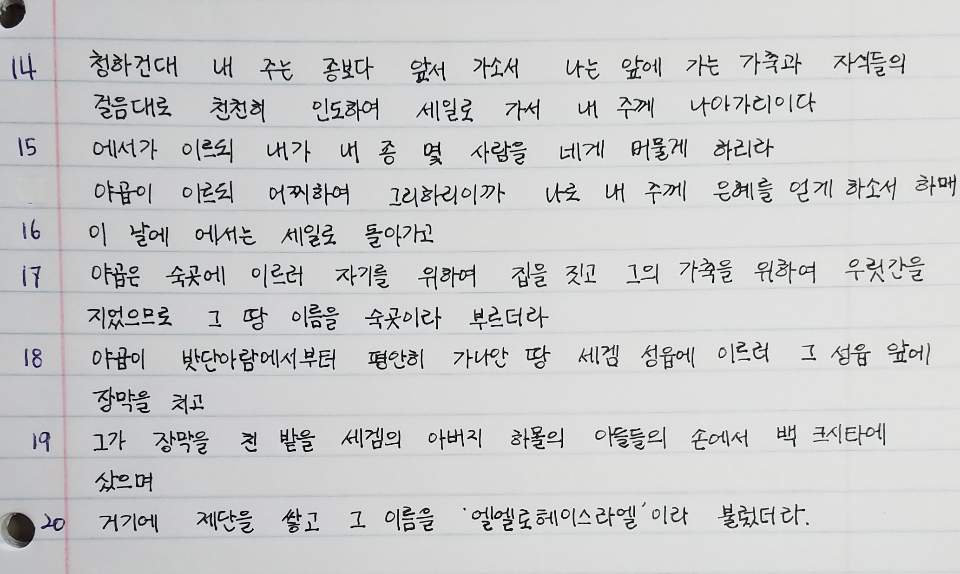 14 청하건대 내 주는 종보다 앞서 가소서 나는 앞에 가는 가축과 자식들의
걸음대로 천천히 인도하여 세일로 가서 내 주께 나아가리이다
15 에서가 이르되 내가 내 종 몇 사람을 네게 머물게 하리라
야곱이 이르되 어찌하여 그리하리이까 나로 내 주께 은혜를 얻게 하소서 하매
16 이 날에 에서는 세일로 돌아가고
17 야곱은 숙곳에 이르러 자기를 위하여 집을 짓고 그의 가축을 위하여 우릿간을
지었으므로 그 땅 이름을 숙곳이라 부르더라
18 야곱이 밧단아람에서부터 평안히 가나안 땅 세겜 성읍에 이르러 그 성읍 앞에
장막을 치고
19 그가 장막을 친 밭을 세겜의 아버지 하몰의 아들들의 손에서 백 크시타에
샀으며
20 거기에 제단을 쌓고 그 이름을 '엘엘로헤이스라엘'이라 불렀더라.